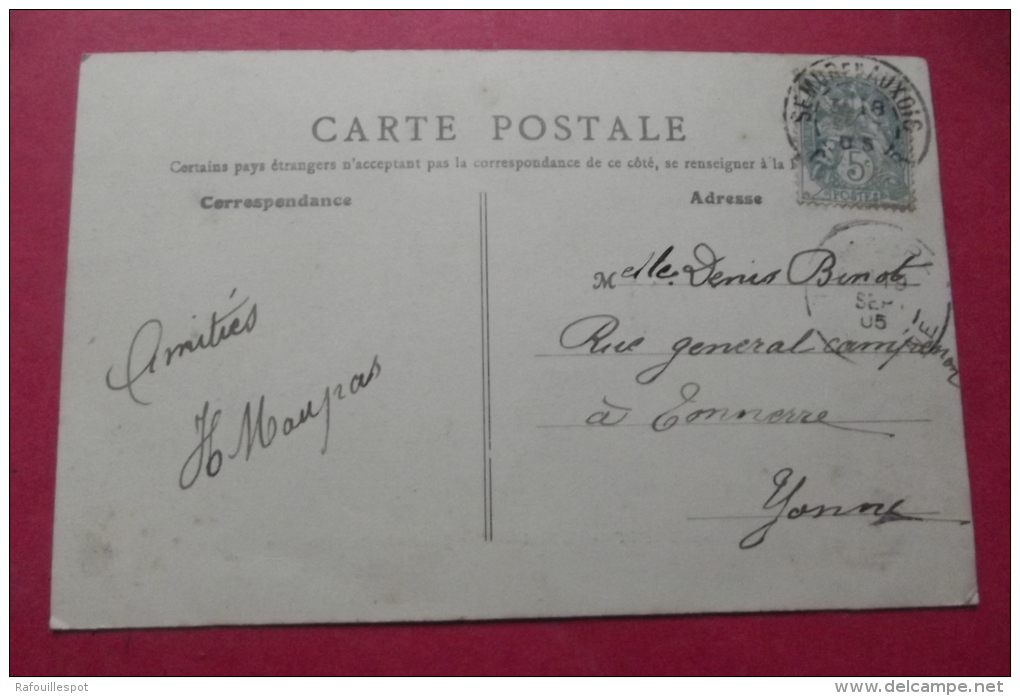 CARTE POSTALE
Certains pays étrangers n'acceptant pas la correspondance de ce côté, se renseigner à la
Correspondance
Adresse
SEMUR EN AUXOIS
18
05
5
POSTES
SEPT
05
Melle Denis Binot
Rue general campenon
à Tonnerre
Yonne
Amitiés
H Maupas
Rafouillespot
delcampe.net